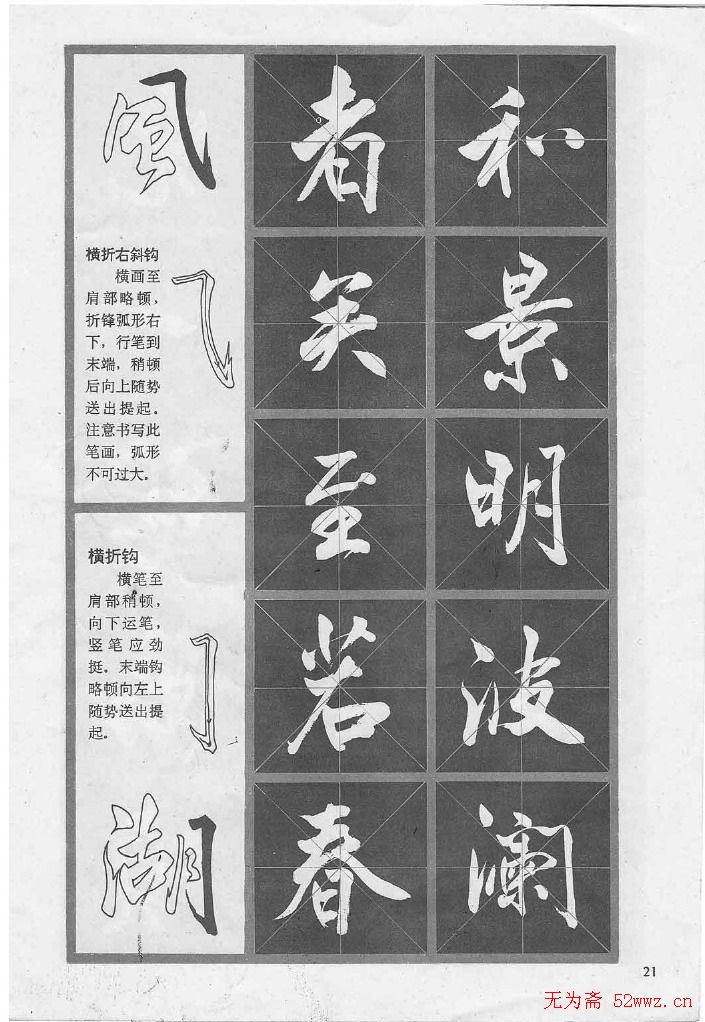 風
横折右斜钩
横画至
肩部略顿，
折锋弧形右
下，行笔到
末端，稍顿
后向上随势
送出提起。
注意书写此
笔画，弧形
不可过大。
横折钩
横笔至
肩部稍顿，
向下运笔，
竖笔应劲
挺。末端钩
略顿向左上
随势送出提
起。
湖
者矣至若春
和景明波澜
21
无为斋 52wwz.cn